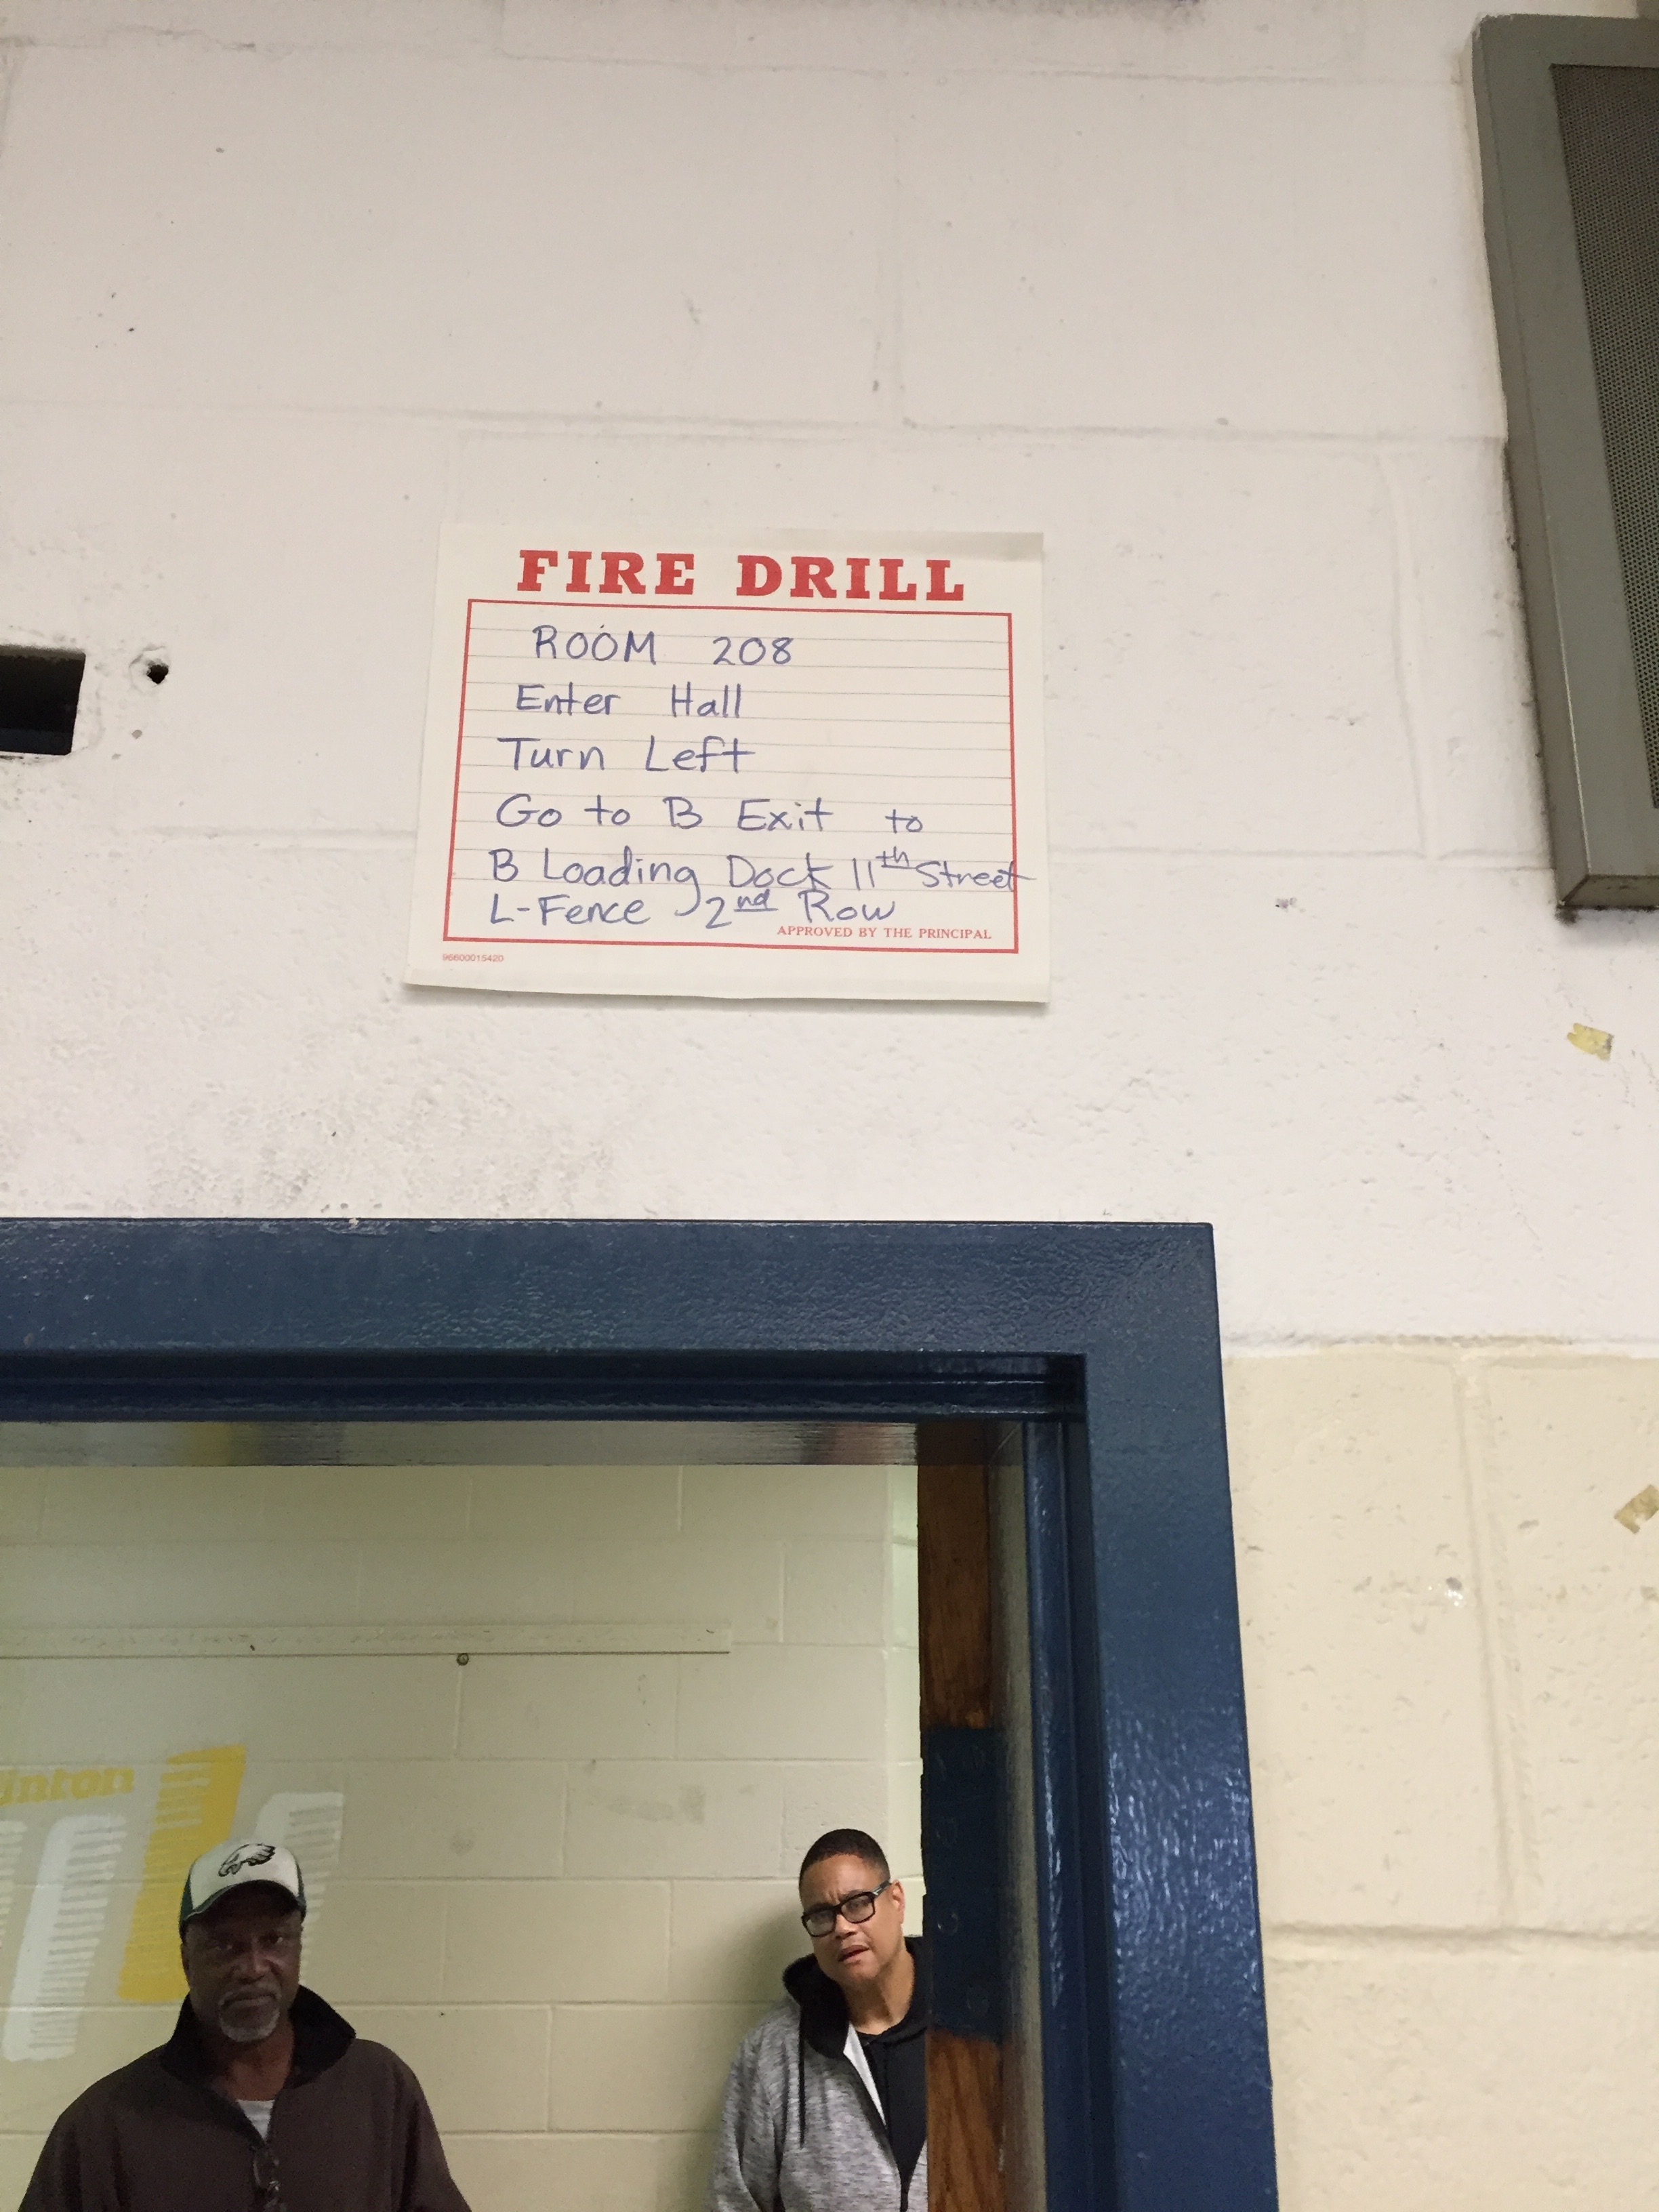 FIRE DRILL
ROOM 208
Enter Hall
Turn Left
Go to B Exit to
B Loading Dock 11th Street
L-Fence 2nd Row
APPROVED BY THE PRINCIPAL
96600015420